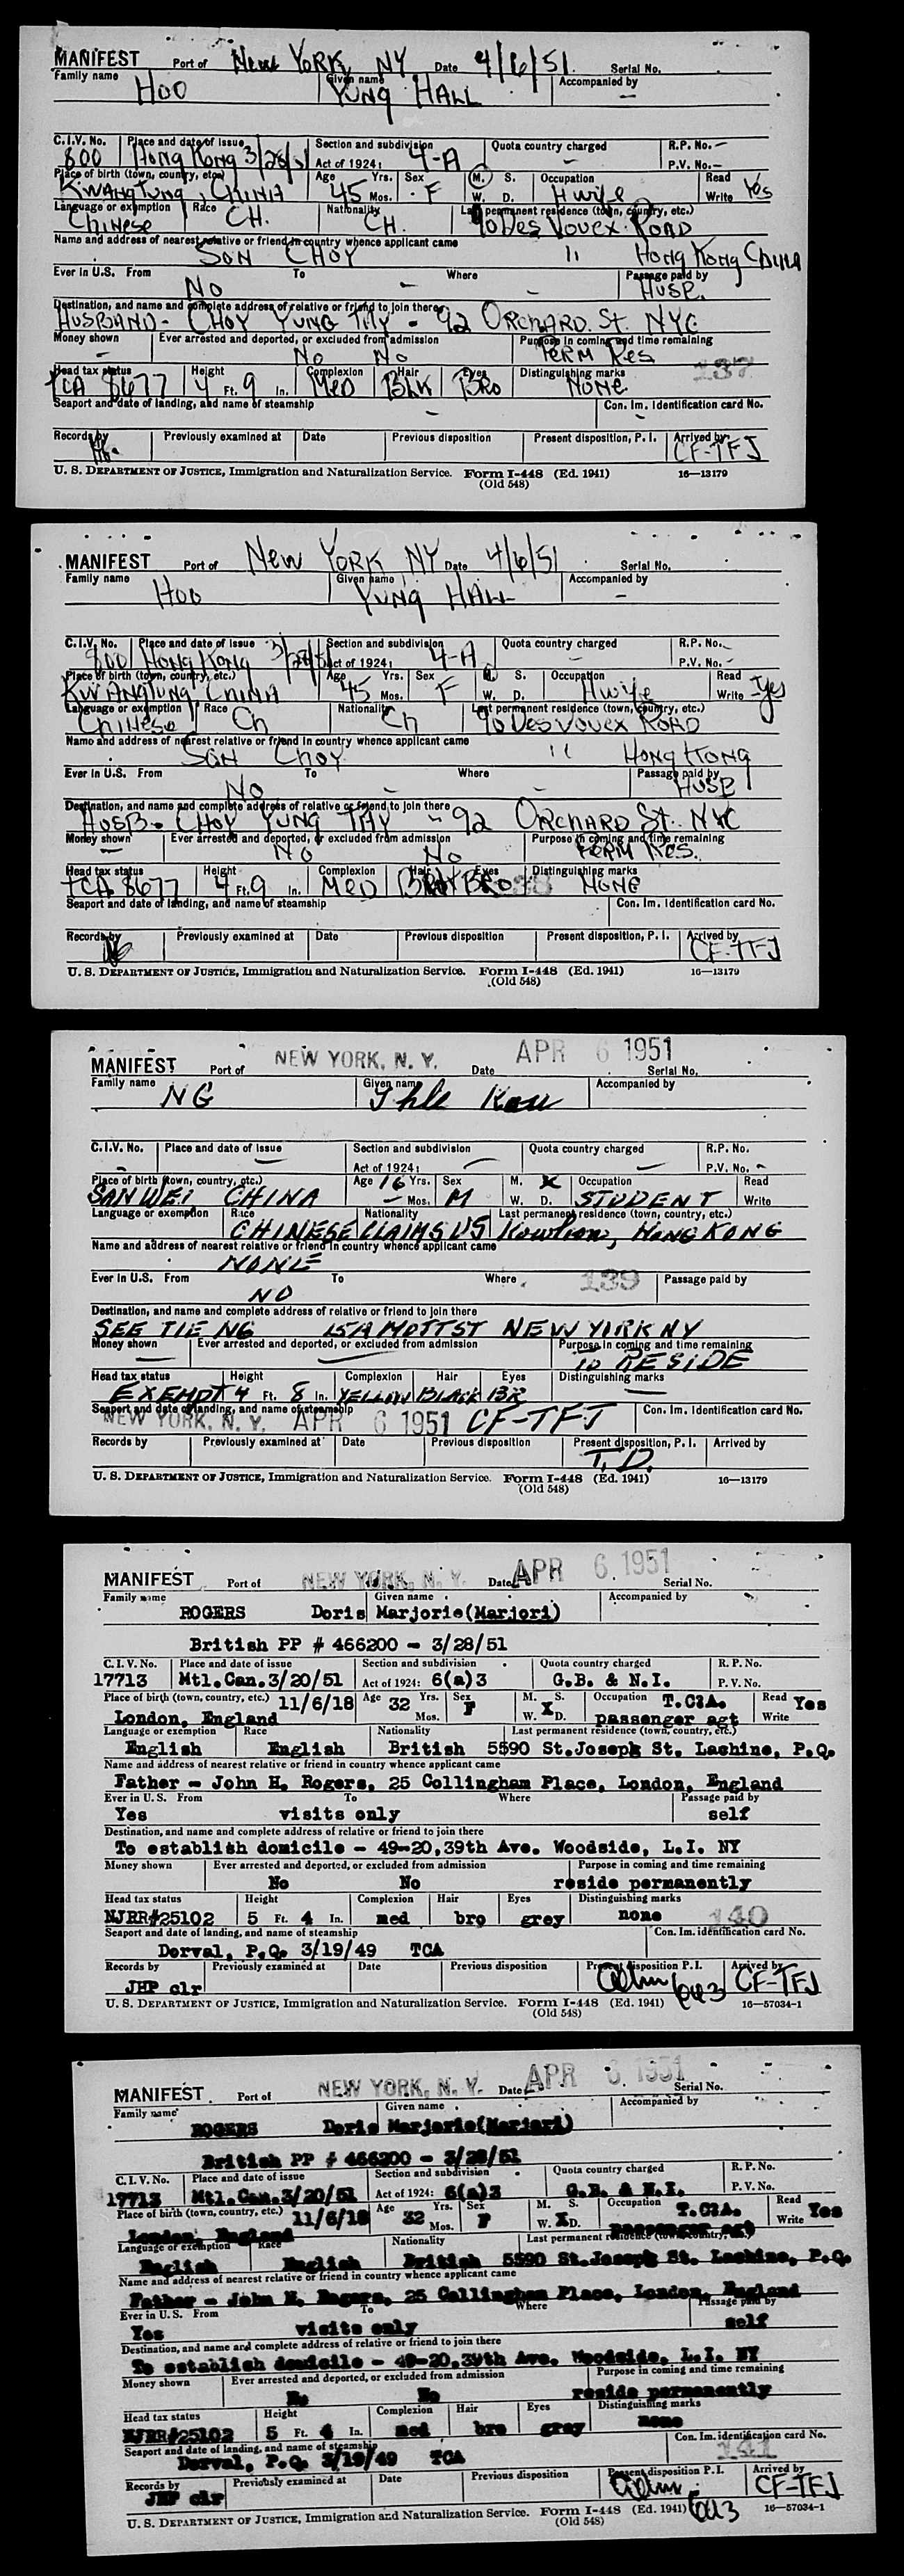 MANIFEST Port of New York NY Date 4/6/51 Serial No.
Family name Given name Accompanied by
Hoo Yung Hall —
C.I.V. No. Place and date of issue Section and subdivision Quota country charged R.P. No. —
800 Hong Kong 3/28/51 Act of 1924: 4-A — P.V. No. —
Place of birth (town, country, etc.) Age Yrs. Sex M. S. Occupation Read
Kwangtung, China 45 Mos. F W. D. Hwife Write Yes
Language or exemption Race Nationality Last permanent residence (town, country, etc.)
Chinese CH. CH. 90 Des Vouex Road
Name and address of nearest relative or friend in country whence applicant came
Son Choy " Hong Kong China
Ever in U.S. From To Where Passage paid by
No — — Husb.
Destination, and name and complete address of relative or friend to join there
Husband - Choy Yung Tiny - 92 Orchard St. NYC
Money shown Ever arrested and deported, or excluded from admission Purpose in coming and time remaining
— No No Perm Res 137
Head tax status Height Complexion Hair Eyes Distinguishing marks
TCA 8677 4 Ft. 9 In. Med Blk Bro None
Seaport and date of landing, and name of steamship Con. Im. Identification card No.
— —
Records by Previously examined at Date Previous disposition Present disposition, P. I. Arrived by
CF-TFJ
U. S. DEPARTMENT OF JUSTICE, Immigration and Naturalization Service. Form I-448 (Ed. 1941) 16—13179
(Old 548)
MANIFEST Port of New York NY Date 4/6/51 Serial No.
Family name Given name Accompanied by
Hoo Yung Hall —
C.I.V. No. Place and date of issue Section and subdivision Quota country charged R.P. No. —
800 Hong Kong 3/28/51 Act of 1924: 4-A — P.V. No. —
Place of birth (town, country, etc.) Age Yrs. Sex M. S. Occupation Read
Kwangtung China 45 Mos. F W. D. Hwife Write Yes
Language or exemption Race Nationality Last permanent residence (town, country, etc.)
Chinese Ch Ch 90 Des Vouex Road
Name and address of nearest relative or friend in country whence applicant came
Son Choy " Hong Kong
Ever in U.S. From To Where Passage paid by
No — — Husb
Destination, and name and complete address of relative or friend to join there
Husb - Choy Yung - 92 Orchard St. NYC
Money shown Ever arrested and deported, or excluded from admission Purpose in coming and time remaining
— No No Perm Res.
Head tax status Height Complexion Hair Eyes Distinguishing marks
TCA 8677 4 Ft. 9 In. Med Bro None
Seaport and date of landing, and name of steamship Con. Im. Identification card No.
Records by Previously examined at Date Previous disposition Present disposition, P. I. Arrived by
CF-TFJ
U. S. DEPARTMENT OF JUSTICE, Immigration and Naturalization Service. Form I-448 (Ed. 1941) 16—13179
(Old 548)
MANIFEST Port of NEW YORK, N. Y. Date APR 6 1951 Serial No.
Family name Given name Accompanied by
NG
C.I.V. No. Place and date of issue Section and subdivision Quota country charged R.P. No.
— — Act of 1924: — — P.V. No. —
Place of birth (town, country, etc.) Age 16 Yrs. Sex M. X Occupation Read
SAN WEI CHINA — Mos. M W. D. STUDENT Write
Language or exemption Race Nationality Last permanent residence (town, country, etc.)
CHINESE CLAIMS US Kowloon, HONG KONG
Name and address of nearest relative or friend in country whence applicant came
NONE
Ever in U.S. From To Where 139 Passage paid by
NO
Destination, and name and complete address of relative or friend to join there
SEE TIE NG 15A MOTT ST NEW YORK NY
Money shown Ever arrested and deported, or excluded from admission Purpose in coming and time remaining
— — TO RESIDE
Head tax status Height Complexion Hair Eyes Distinguishing marks
EXEMPT 4 Ft. 8 In. YELLOW BLACK BR —
Seaport and date of landing, and name of steamship Con. Im. Identification card No.
NEW YORK, N. Y. APR 6 1951 CF-TFJ
Records by Previously examined at Date Previous disposition Present disposition, P. I. Arrived by
T.D.
U. S. DEPARTMENT OF JUSTICE, Immigration and Naturalization Service. Form I-448 (Ed. 1941) 16—13179
(Old 548)
MANIFEST Port of NEW YORK, N. Y. Date APR 6 1951 Serial No.
Family name Given name Accompanied by
ROGERS Doris Marjorie(Marjori)
British PP # 466200 - 3/28/51
C.I.V. No. Place and date of issue Section and subdivision Quota country charged R. P. No.
17713 Mtl.Can.3/20/51 Act of 1924: 6(a)3 G.B. & N.I. P. V. No.
Place of birth (town, country, etc.) 11/6/18 Age 32 Yrs. Sex M. S. Occupation T.C?A. Read Yes
London, England Mos. F W. X D. passenger agt Write
Language or exemption Race Nationality Last permanent residence (town, country, etc.)
English English British 5590 St.Joseph St. Lachine, P.Q.
Name and address of nearest relative or friend in country whence applicant came
Father - John H. Rogers, 25 Collingham Place, London, England
Ever in U.S. From To Where Passage paid by
Yes visits only self
Destination, and name and complete address of relative or friend to join there
To establish domicile - 49-20,39th Ave. Woodside, L.I. NY
Money shown Ever arrested and deported, or excluded from admission Purpose in coming and time remaining
No No reside permanently
Head tax status Height Complexion Hair Eyes Distinguishing marks
NJRR#25102 5 Ft. 4 In. med bro grey none 140
Seaport and date of landing, and name of steamship Con. Im. identification card No.
Dorval, P.Q. 3/19/49 TCA
Records by Previously examined at Date Previous disposition Present disposition P. I. Arrived by
JHP clr Adm 643 CF-TFJ
U. S. DEPARTMENT OF JUSTICE, Immigration and Naturalization Service. Form I-448 (Ed. 1941) 16—57034-1
(Old 548)
MANIFEST Port of NEW YORK, N. Y. Date APR 6 1951 Serial No.
Family name Given name Accompanied by
ROGERS Doris Marjorie(Marjori)
British PP # 466200 - 3/28/51
C.I.V. No. Place and date of issue Section and subdivision Quota country charged R. P. No.
17713 Mtl.Can.3/20/51 Act of 1924: 6(a)3 G.B. & N.I. P. V. No.
Place of birth (town, country, etc.) 11/6/18 Age 32 Yrs. Sex M. S. Occupation T.C?A. Read Yes
London, England Mos. F W. X D. passenger agt Write
Language or exemption Race Nationality Last permanent residence (town, country, etc.)
English English British 5590 St.Joseph St. Lachine, P.Q.
Name and address of nearest relative or friend in country whence applicant came
Father - John H. Rogers, 25 Collingham Place, London, England
Ever in U.S. From To Where Passage paid by
Yes visits only self
Destination, and name and complete address of relative or friend to join there
To establish domicile - 49-20,39th Ave. Woodside, L.I. NY
Money shown Ever arrested and deported, or excluded from admission Purpose in coming and time remaining
No No reside permanently
Head tax status Height Complexion Hair Eyes Distinguishing marks
NJRR#25102 5 Ft. 4 In. med bro grey none
Seaport and date of landing, and name of steamship Con. Im. identification card No.
Dorval, P.Q. 3/19/49 TCA 141
Records by Previously examined at Date Previous disposition Present disposition P. I. Arrived by
JHP clr Adm 643 CF-TFJ
U. S. DEPARTMENT OF JUSTICE, Immigration and Naturalization Service. Form I-448 (Ed. 1941) 16—57034-1
(Old 548)